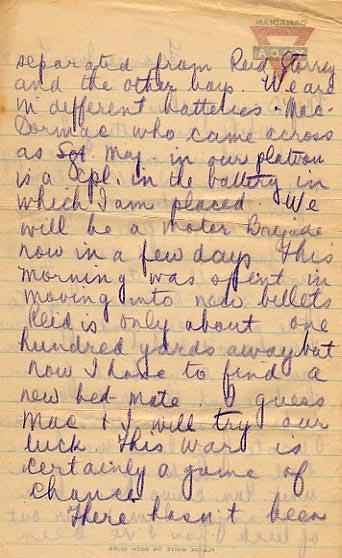 CANADIAN
YMCA
separated from Reid Storrey
and the other boys. We are
in different batteries. Mac-
Dormac who came across
as Sgt. Maj. in our platoon
is a cpl. in the battery in
which I am placed. We
will be a motor Brigade
now in a few days. This
morning was spent in
moving into new billets
Reid is only about one
hundred yards away but
now I have to find a
new bed-mate I guess
Mac + I will try our
luck. This war is
certainly a game of
chance.
There hasn't been
PLEASE WRITE ON BOTH SIDES